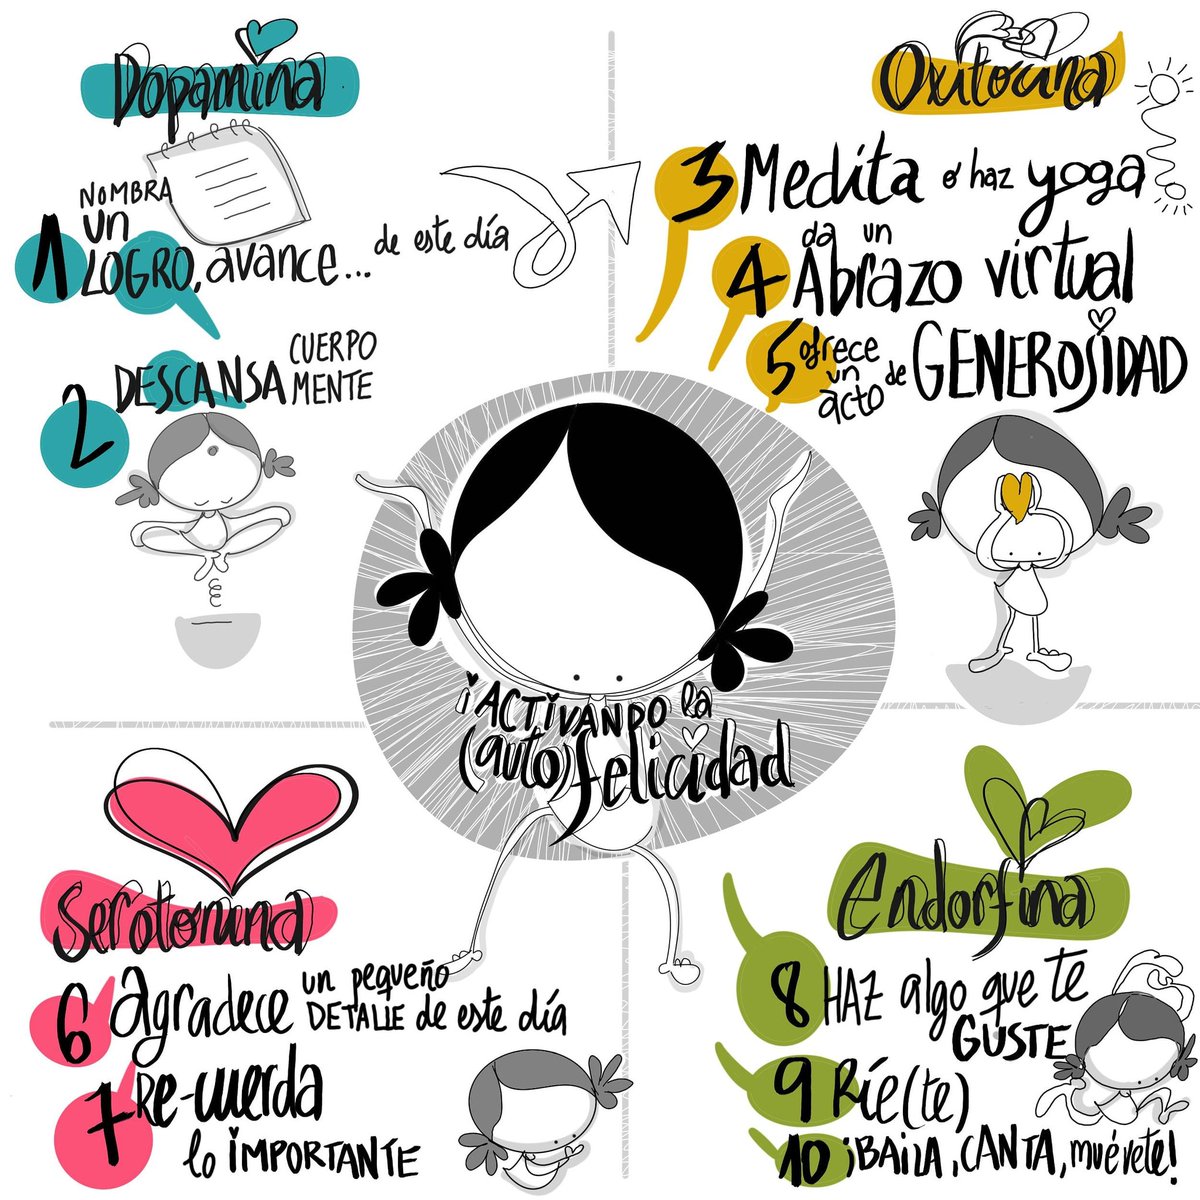 Dopamina
1 NOMBRA
un
LOGRO, avance... de este día
2 DESCANSA CUERPO
MENTE
Oxitocina
3 Medita ó haz yoga
4 da un
Abrazo virtual
5 ofrece
un
acto de GENEROSIDAD
¡ACTIVANDO la
(auto) felicidad
Serotonina
6 Agradece un pequeño
DETALLE de este día
7 Re-cuerda
lo IMPORTANTE
Endorfina
8 HAZ algo que te
GUSTE
9 Ríe(te)
10 ¡BAILA, CANTA, muévete!